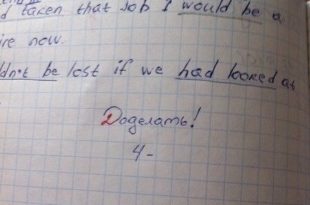 taken that job I would be a
ire now.
ldn't be lost if we had looked at
Доделать!
4-